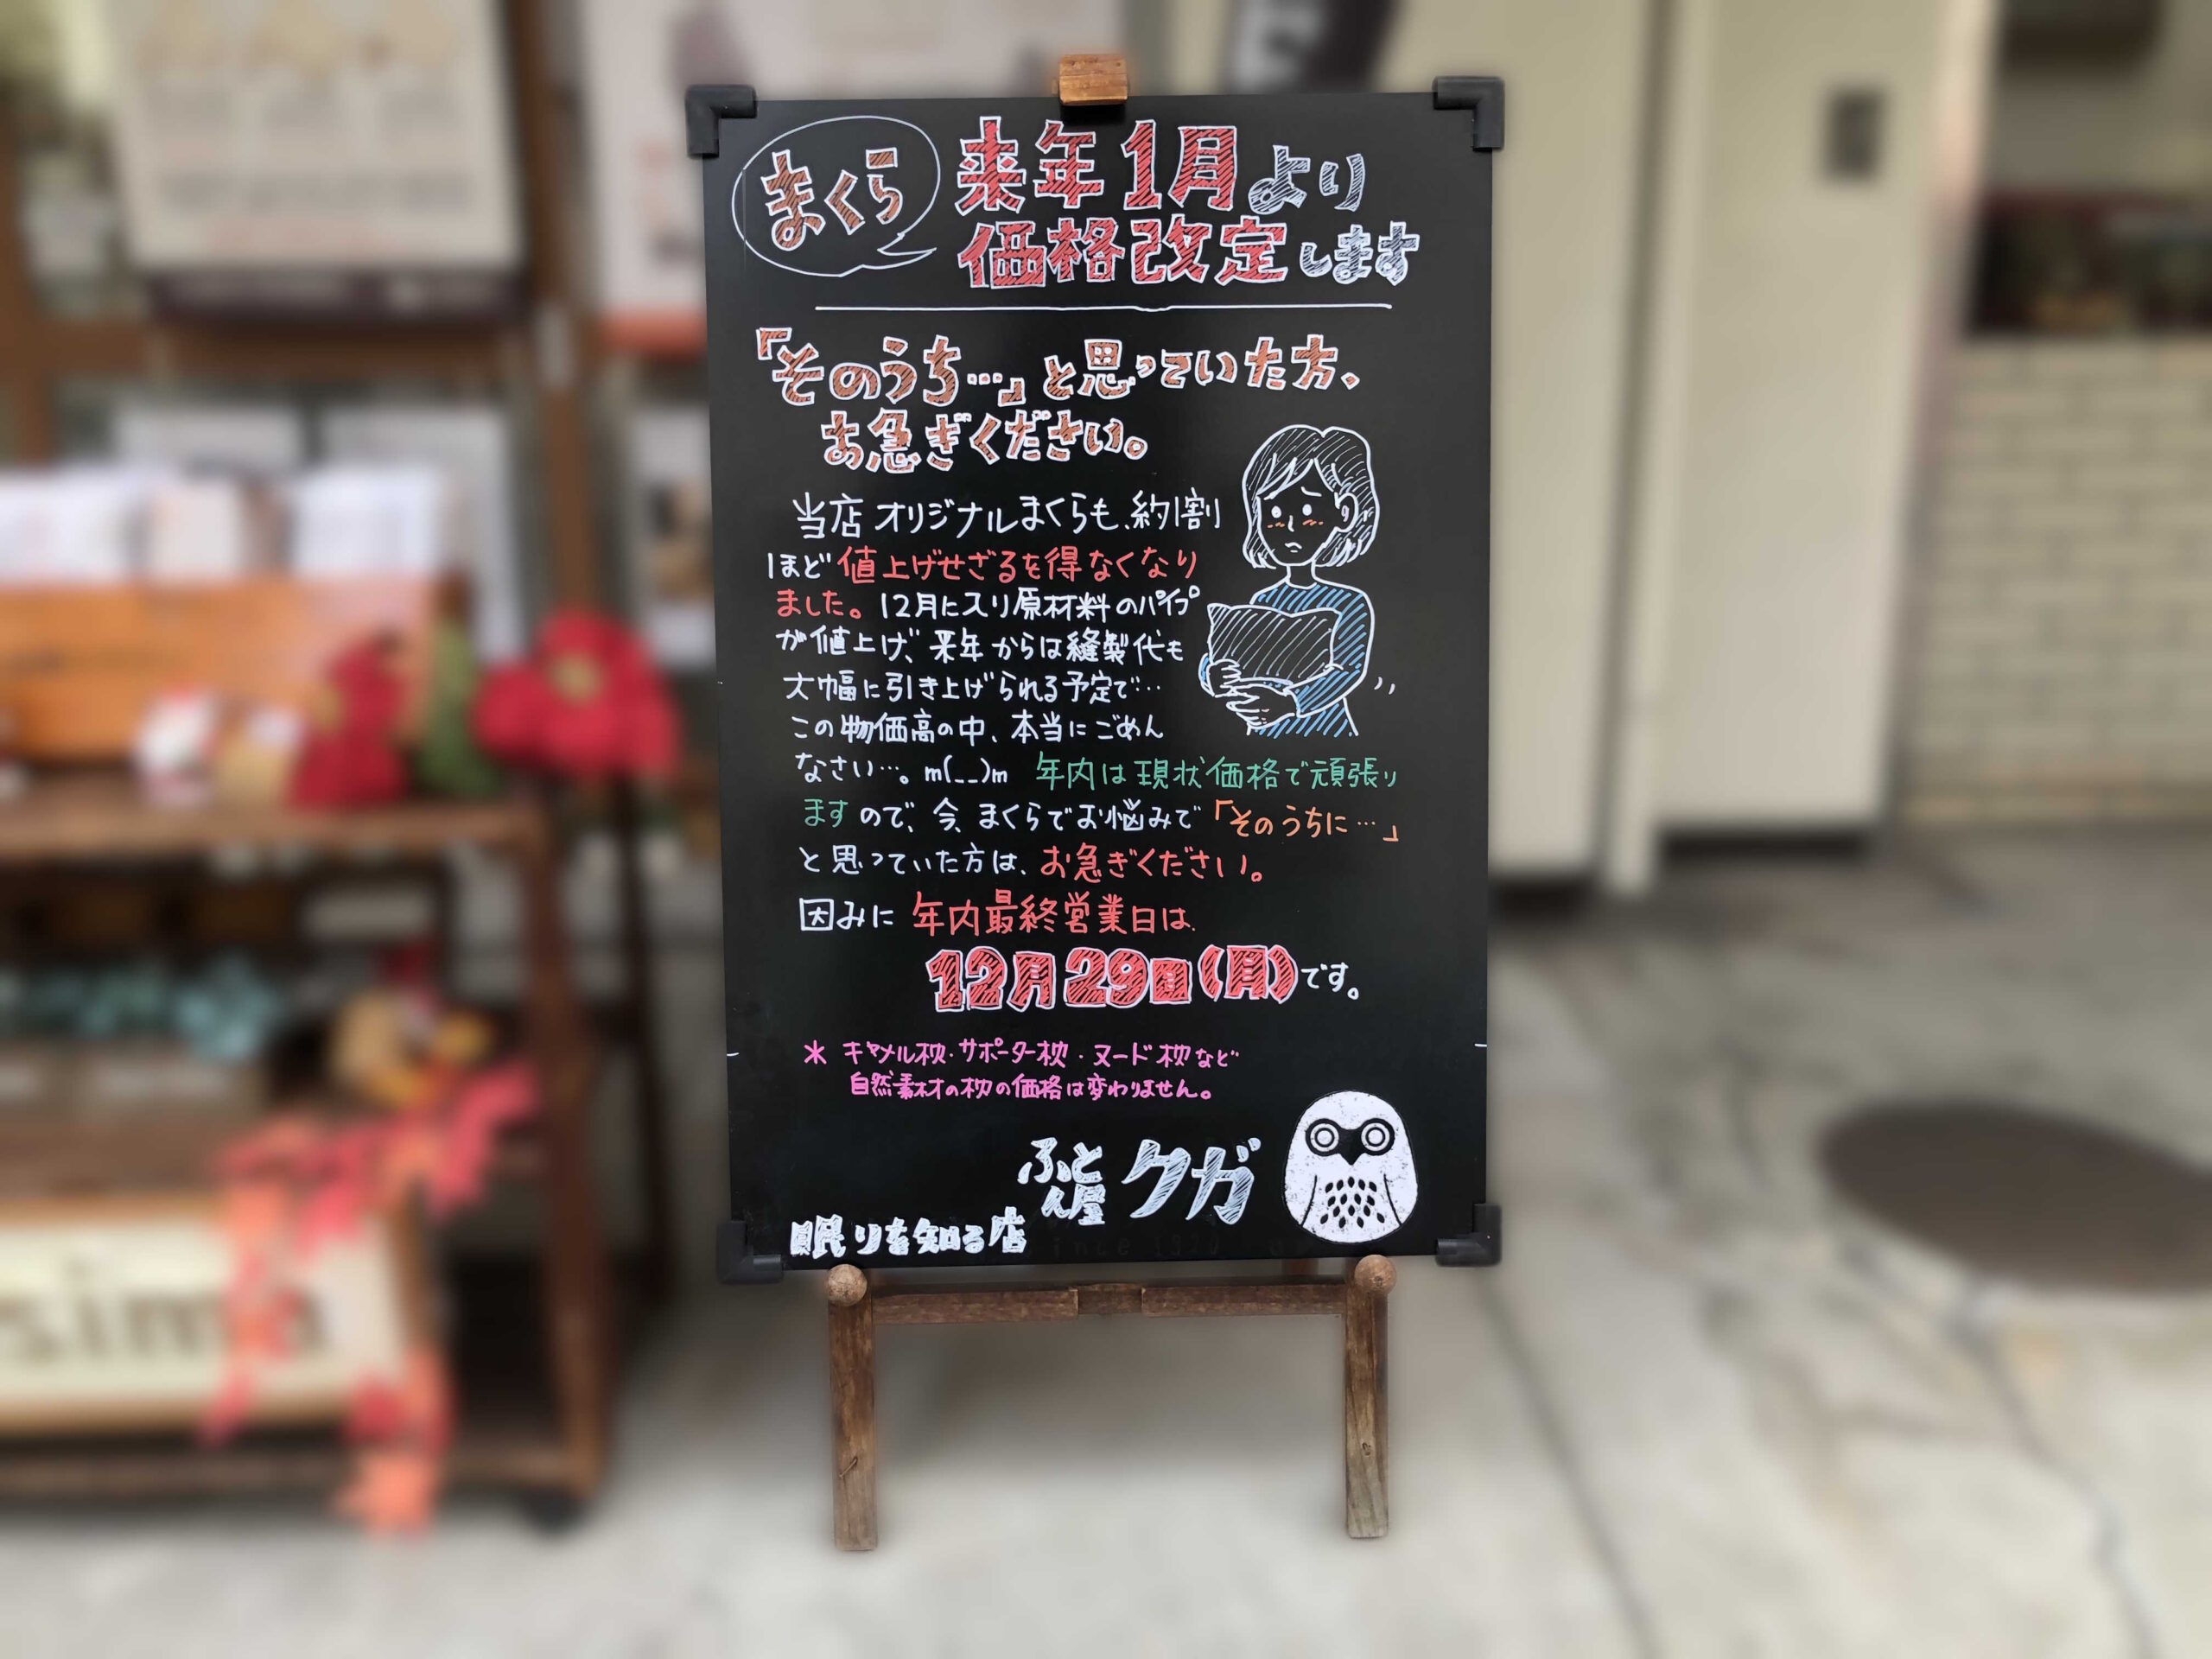 まくら
来年1月より
価格改定します
「そのうち…」と思っていた方、
お急ぎください。
当店オリジナルまくらも、約1割
ほど値上げせざるを得なくなり
ました。12月に入り原材料のパイプ
が値上げ、来年からは縫製代も
大幅に引き上げられる予定で…
この物価高の中、本当にごめん
なさい…。m(__)m 年内は現状価格で頑張り
ますので、今、まくらでお悩みで「そのうちに…」
と思っていた方は、お急ぎください。
因みに年内最終営業日は、
12月29日(月)です。
＊キャメル枕・サポーター枕・ヌード枕など
自然素材の枕の価格は変わりません。
ふとん屋クガ
眠りを知る店